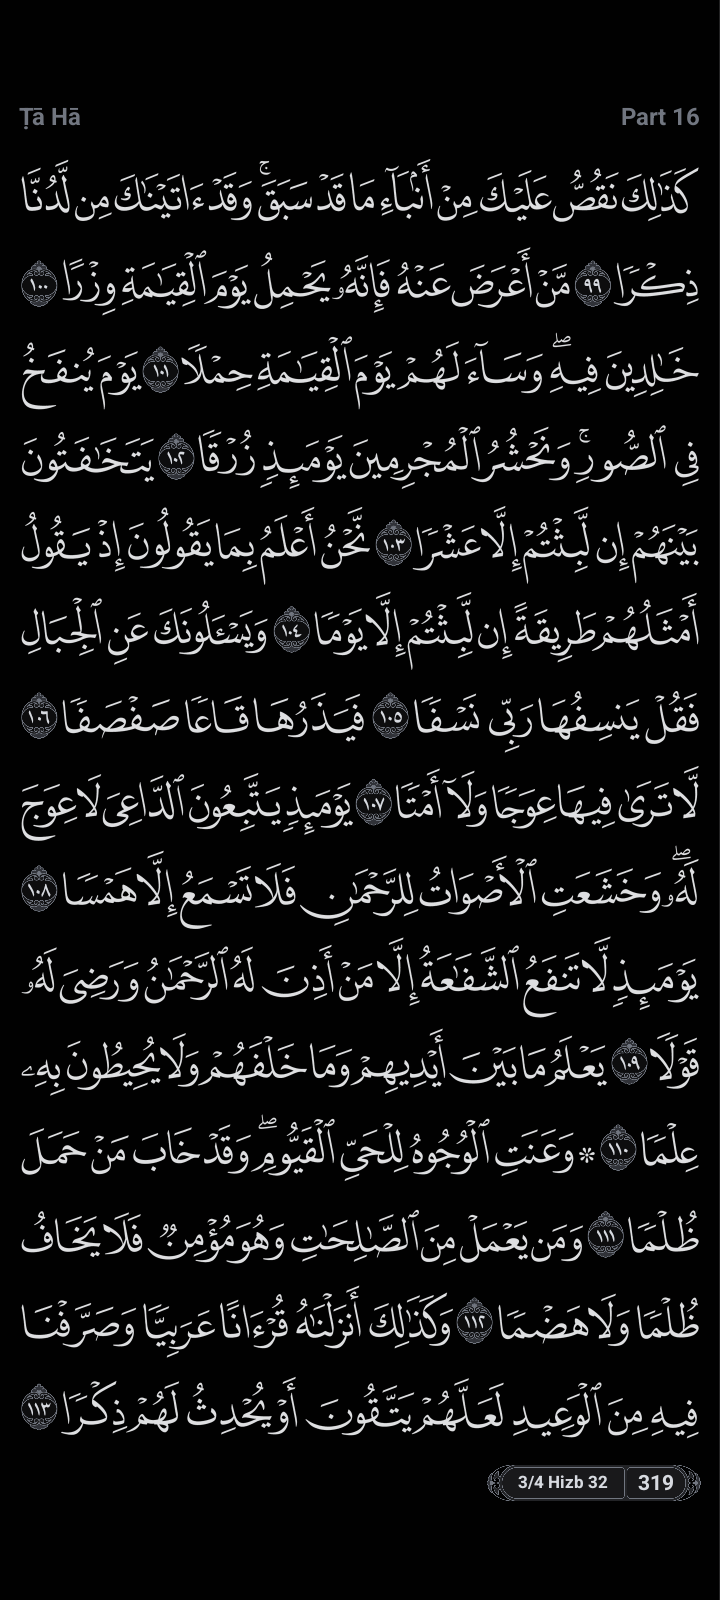 Ṭā Hā
Part 16
كَذَٰلِكَ نَقُصُّ عَلَيْكَ مِنْ أَنۢبَآءِ مَا قَدْ سَبَقَۚ وَقَدْ ءَاتَيْنَٰكَ مِن لَّدُنَّا
ذِكْرًا ٩٩ مَّنْ أَعْرَضَ عَنْهُ فَإِنَّهُۥ يَحْمِلُ يَوْمَ ٱلْقِيَٰمَةِ وِزْرًا ١٠٠
خَٰلِدِينَ فِيهِۖ وَسَآءَ لَهُمْ يَوْمَ ٱلْقِيَٰمَةِ حِمْلًا ١٠١ يَوْمَ يُنفَخُ
فِى ٱلصُّورِۚ وَنَحْشُرُ ٱلْمُجْرِمِينَ يَوْمَئِذٍ زُرْقًا ١٠٢ يَتَخَٰفَتُونَ
بَيْنَهُمْ إِن لَّبِثْتُمْ إِلَّا عَشْرًا ١٠٣ نَّحْنُ أَعْلَمُ بِمَا يَقُولُونَ إِذْ يَقُولُ
أَمْثَلُهُمْ طَرِيقَةً إِن لَّبِثْتُمْ إِلَّا يَوْمًا ١٠٤ وَيَسْـَٔلُونَكَ عَنِ ٱلْجِبَالِ
فَقُلْ يَنسِفُهَا رَبِّى نَسْفًا ١٠٥ فَيَذَرُهَا قَاعًا صَفْصَفًا ١٠٦
لَّا تَرَىٰ فِيهَا عِوَجًا وَلَآ أَمْتًا ١٠٧ يَوْمَئِذٍ يَتَّبِعُونَ ٱلدَّاعِىَ لَا عِوَجَ
لَهُۥۖ وَخَشَعَتِ ٱلْأَصْوَاتُ لِلرَّحْمَٰنِ فَلَا تَسْمَعُ إِلَّا هَمْسًا ١٠٨
يَوْمَئِذٍ لَّا تَنفَعُ ٱلشَّفَٰعَةُ إِلَّا مَنْ أَذِنَ لَهُ ٱلرَّحْمَٰنُ وَرَضِىَ لَهُۥ
قَوْلًا ١٠٩ يَعْلَمُ مَا بَيْنَ أَيْدِيهِمْ وَمَا خَلْفَهُمْ وَلَا يُحِيطُونَ بِهِۦ
عِلْمًا ١١٠ ۞ وَعَنَتِ ٱلْوُجُوهُ لِلْحَىِّ ٱلْقَيُّومِۖ وَقَدْ خَابَ مَنْ حَمَلَ
ظُلْمًا ١١١ وَمَن يَعْمَلْ مِنَ ٱلصَّٰلِحَٰتِ وَهُوَ مُؤْمِنٌ فَلَا يَخَافُ
ظُلْمًا وَلَا هَضْمًا ١١٢ وَكَذَٰلِكَ أَنزَلْنَٰهُ قُرْءَانًا عَرَبِيًّا وَصَرَّفْنَا
فِيهِ مِنَ ٱلْوَعِيدِ لَعَلَّهُمْ يَتَّقُونَ أَوْ يُحْدِثُ لَهُمْ ذِكْرًا ١١٣
3/4 Hizb 32 319